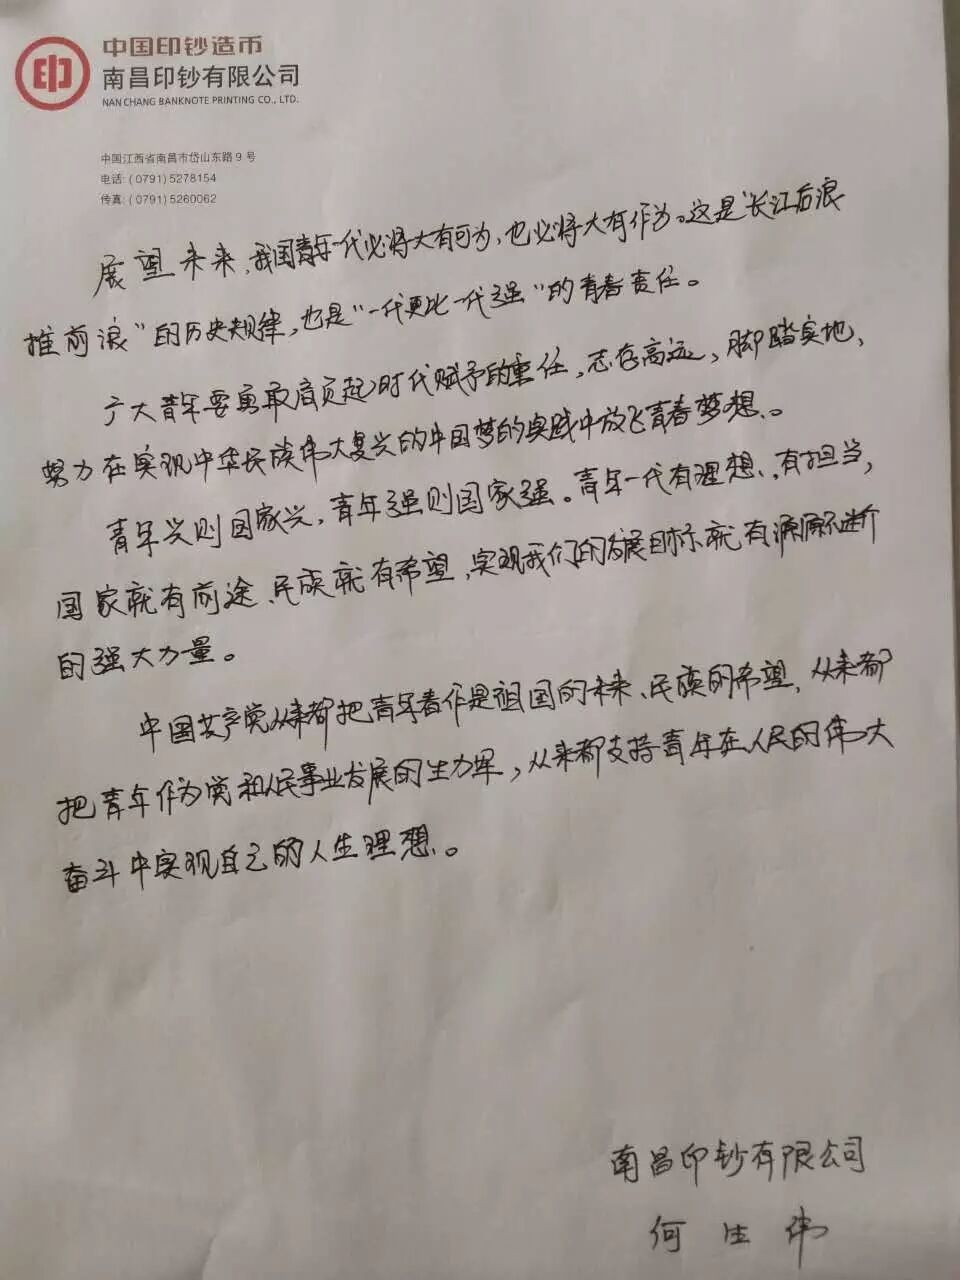 中国印钞造币
南昌印钞有限公司
NAN CHANG BANKNOTE PRINTING CO., LTD.
中国江西省南昌市岱山东路9号
电话: (0791) 5278154
传真: (0791) 5260062
展望未来,我国青年一代必将大有可为,也必将大有作为。这是“长江后浪
推前浪”的历史规律,也是“一代更比一代强”的青春责任。
广大青年要勇敢肩负起时代赋予的重任,志存高远,脚踏实地,
努力在实现中华民族伟大复兴的中国梦的实践中放飞青春梦想。
青年兴则国家兴,青年强则国家强。青年一代有理想,有担当,
国家就有前途、民族就有希望,实现我们的发展目标就有源源不断
的强大力量。
中国共产党从来都把青年看作是祖国的未来、民族的希望,从来都
把青年作为党和人民事业发展的生力军,从来都支持青年在人民的伟大
奋斗中实现自己的人生理想。
南昌印钞有限公司
何 生 伟